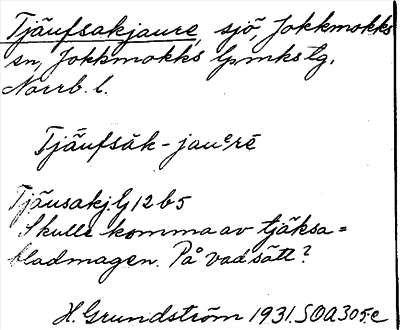 Tjäufsakjaure, sjö, Jokkmokks
sn, Jokkmokks lpmks tg,
Norrb. l.
Tjäufsăk-jauᵉrē
Tjäusakj. G 12 b 5
Skulle komma av tjäksa =
bladmagen. På vad sätt?
H. Grundström 1931. SOA 305: c